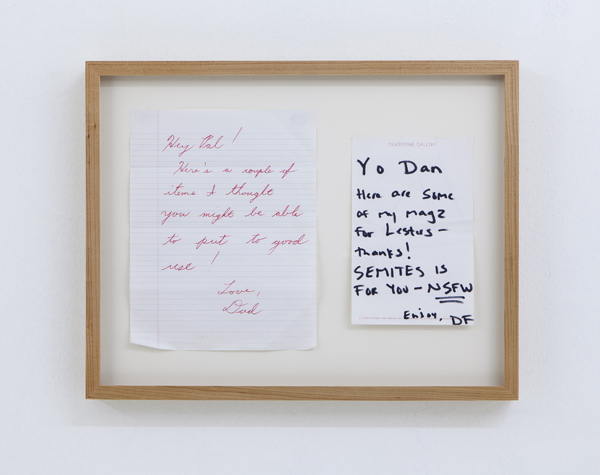 Hey Pal!
Here's a couple of
items I thought
you might be able
to put to good
use!
Love,
Dad
GALLERY
Yo Dan
Here are some
of my magz
for Lesters-
thanks!
SEMITES IS
FOR YOU - NSFW
Enjoy, DF